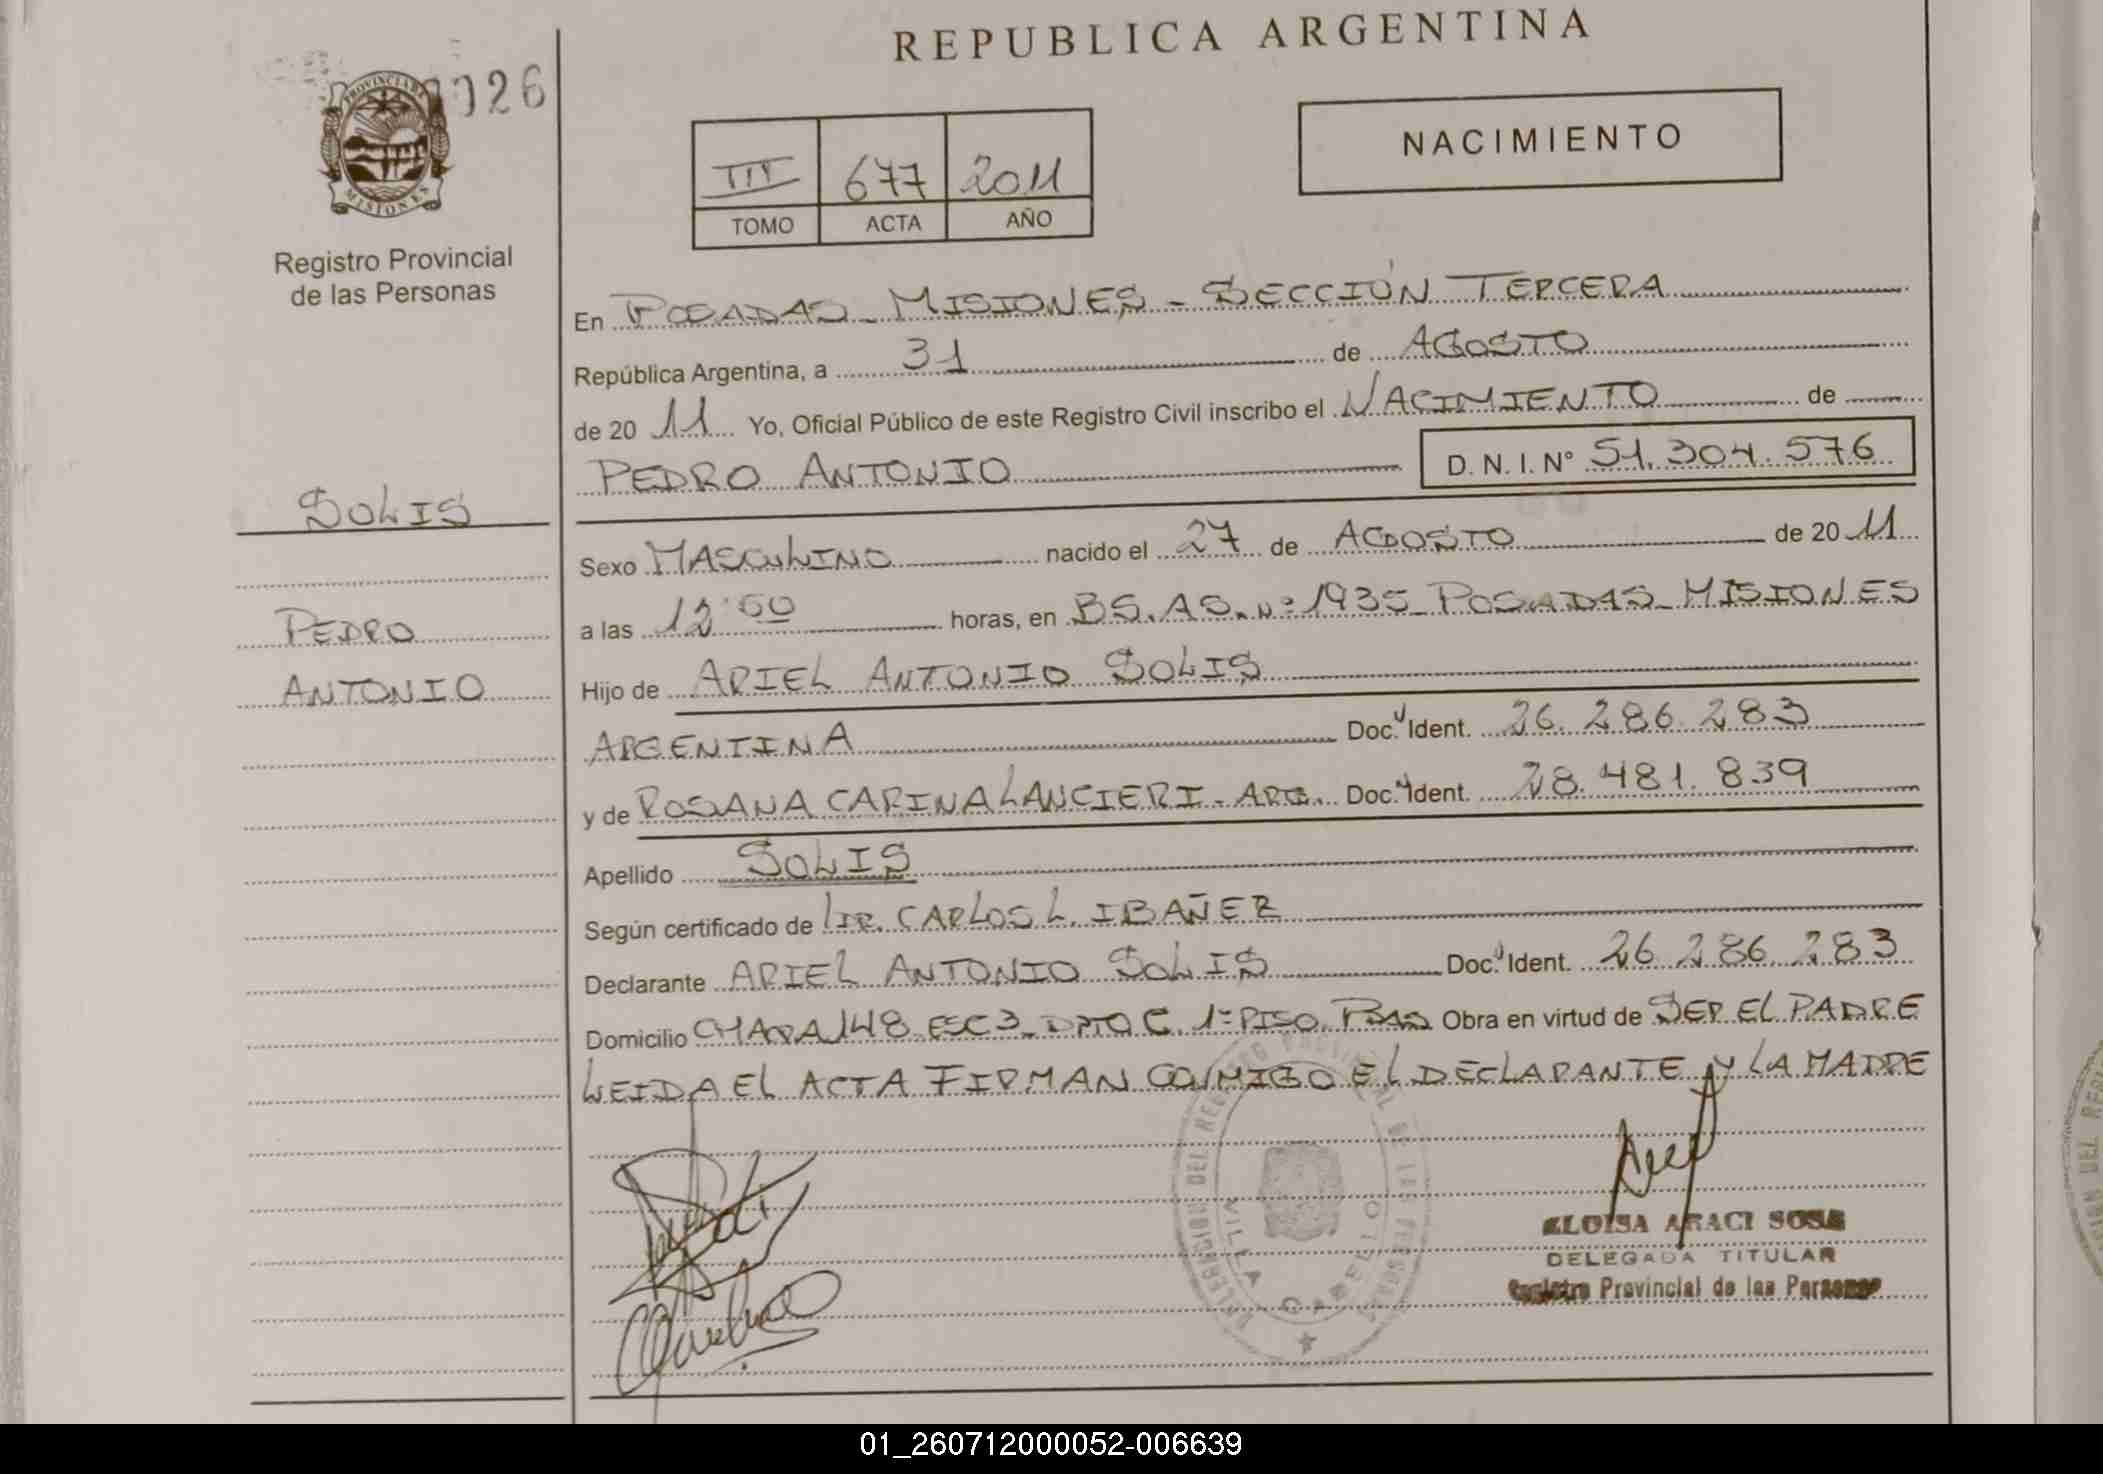 REPUBLICA ARGENTINA
026
PROVINCIA DE
MISIONES
Registro Provincial
de las Personas
III 677 2011
TOMO ACTA AÑO
NACIMIENTO
En POSADAS - MISIONES - SECCIÓN TERCERA
República Argentina, a 31 de AGOSTO
de 20 11 Yo, Oficial Público de este Registro Civil inscribo el NACIMIENTO de
PEDRO ANTONIO D. N. I. N° 51.304.576
SOLIS
PEDRO
ANTONIO
Sexo MASCULINO nacido el 27 de AGOSTO de 20 11
a las 12:00 horas, en BS. AS. Nº 1935 - POSADAS - MISIONES
Hijo de ARIEL ANTONIO SOLIS
ARGENTINA Doc. Ident. 26.286.283
y de ROSANA CARINA LANCIERI - ARG. Doc. Ident. 28.481.839
Apellido SOLIS
Según certificado de DR. CARLOS L. IBAÑEZ
Declarante ARIEL ANTONIO SOLIS Doc. Ident. 26.286.283
Domicilio CHACRA 148 ESC 3 - DPTO C 1º PISO Obra en virtud de SER EL PADRE
LEIDA EL ACTA FIRMAN CONMIGO EL DECLARANTE Y LA MADRE
DELEGACION DEL REGISTRO PROVINCIAL DE LAS PERSONAS
VILLA CABELLO
ELOISA ARACI SOSA
DELEGADA TITULAR
Registro Provincial de las Personas
01_260712000052-006639